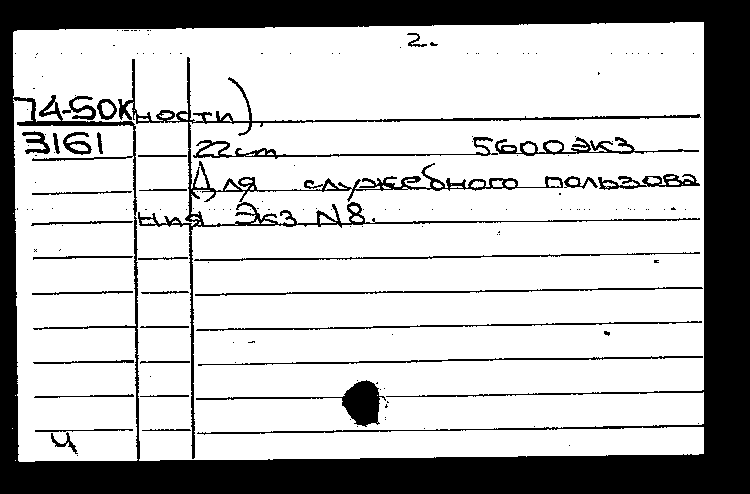 2.
74-50К ности).
3161 22cm 5600 экз
Для служебного пользова
ния. Экз. N8.
ч